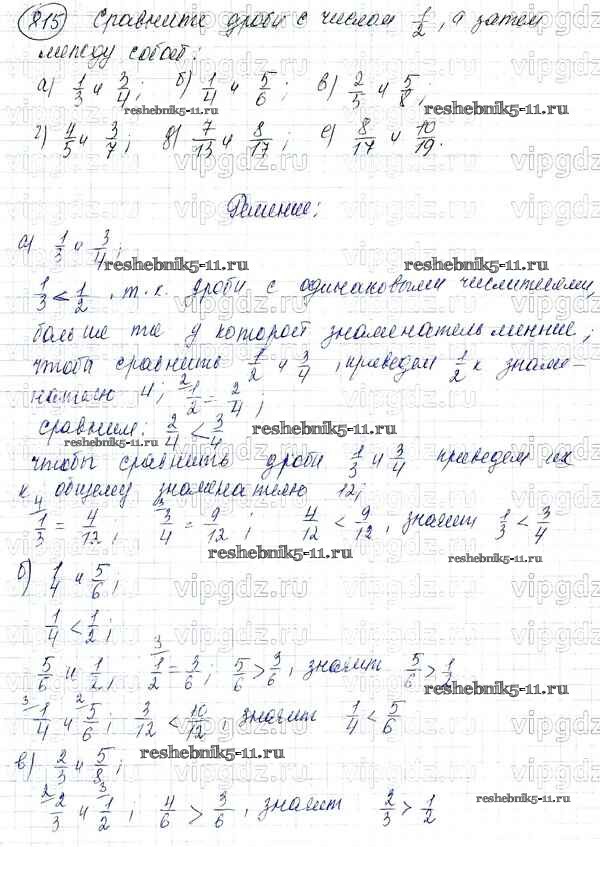 815 Сравните дроби с числом 1/2, а затем
между собой:
а) 1/3 и 3/4; б) 1/4 и 5/6; в) 2/5 и 5/8;
reshebnik5-11.ru reshebnik5-11.ru
г) 4/5 и 3/7; д) 7/13 и 8/17; е) 8/17 и 10/19.
Решение:
а) 1/3 и 3/4;
reshebnik5-11.ru reshebnik5-11.ru
1/3 < 1/2, т.к. дроби с одинаковыми числителями,
больше та у которой знаменатель меньше;
чтобы сравнить 1/2 и 3/4, приведем 1/2 к знаме-
нателю 4; 2 1/2 = 2/4;
сравним: 2/4 < 3/4
reshebnik5-11.ru reshebnik5-11.ru
чтобы сравнить дроби 1/3 и 3/4 приведем их
к общему знаменателю 12;
4 1/3 = 4/12; 3 3/4 = 9/12; 4/12 < 9/12, значит 1/3 < 3/4
reshebnik5-11.ru reshebnik5-11.ru
б) 1/4 и 5/6;
1/4 < 1/2;
5/6 и 1/2, 3 1/2 = 3/6; 5/6 > 3/6, значит 5/6 > 1/2
reshebnik5-11.ru
3 1/4 и 2 5/6; 3/12 < 10/12, значит 1/4 < 5/6
reshebnik5-11.ru
в) 2/3 и 5/8;
reshebnik5-11.ru
2 2/3 и 3 1/2; 4/6 > 3/6, значит 2/3 > 1/2
vipgdz.ru